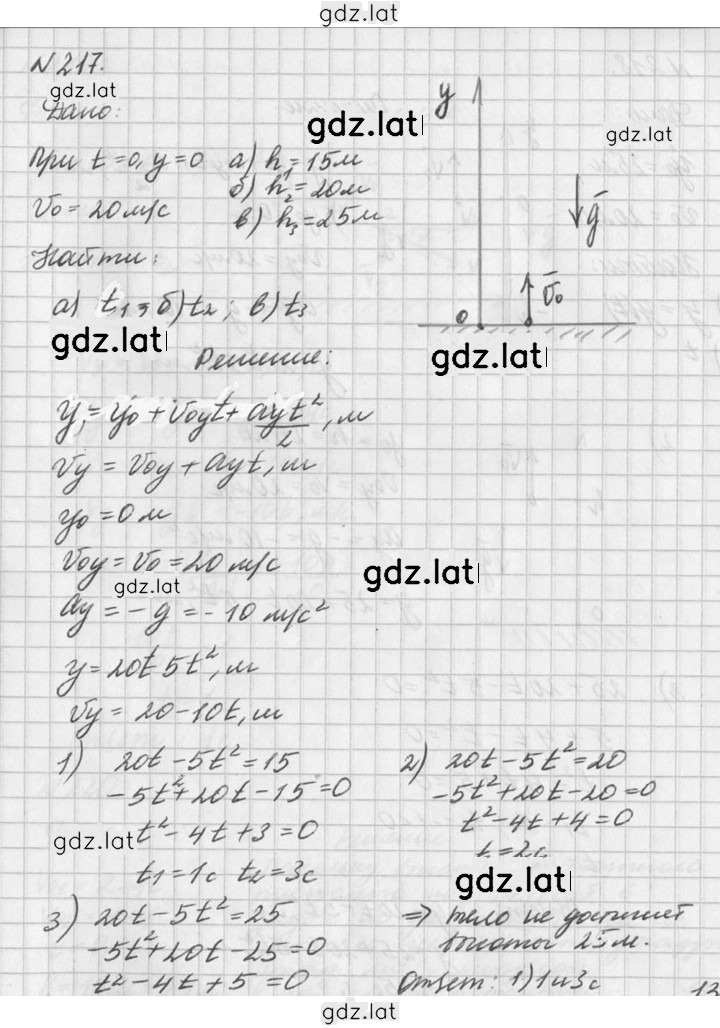 gdz.lat
N 217.
gdz.lat
Дано:
gdz.lat
gdz.lat
y
при t=0, y=0 а) h₁=15м
б) h₂=20м
v₀=20м/с в) h₃=25м
g̅
Найти:
v̅₀
а) t₁; б) t₂; в) t₃
0
gdz.lat
gdz.lat
Решение:
y₁=y₀+v₀yt+ayt²/2, м
vy=v₀y+ayt, м
y₀=0м
v₀y=v₀=20м/с
gdz.lat
gdz.lat
ay=-g=-10м/с²
y=20t 5t², м
vy=20-10t, м
1) 20t-5t²=15
-5t²+20t-15=0
t²-4t+3=0
gdz.lat
t₁=1с t₂=3с
2) 20t-5t²=20
-5t²+20t-20=0
t²-4t+4=0
t=2с
gdz.lat
3) 20t-5t²=25
-5t²+20t-25=0
t²-4t+5=0
⇒ тело не достигнет
высоты 25м.
Ответ: 1) 1 и 3с
12
gdz.lat